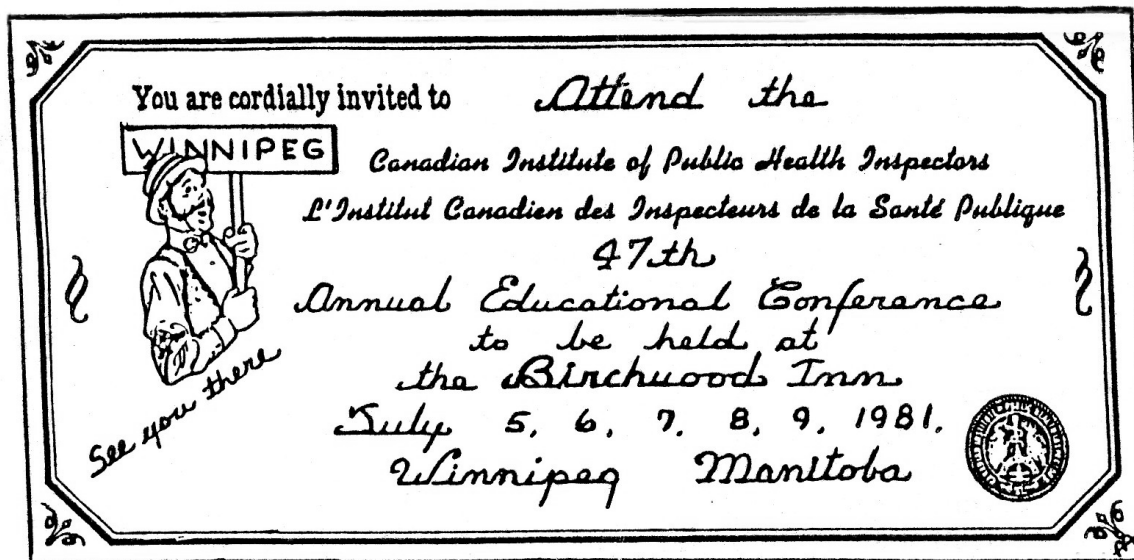 You are cordially invited to Attend the
WINNIPEG
Canadian Institute of Public Health Inspectors
L'Institut Canadien des Inspecteurs de la Santé Publique
47th
Annual Educational Conference
to be held at
the Birchwood Inn
July 5, 6, 7, 8, 9, 1981.
Winnipeg Manitoba
See you there